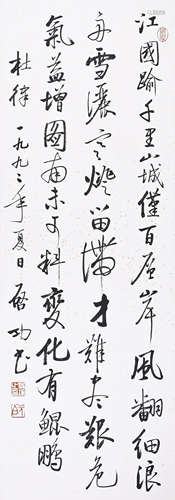 江國踰千里山城僅百層岸風翻細浪
舟雪灑寒燈留滯才難盡艱危
氣益增圖南未可料變化有鯤鵬
杜律 一九九二年夏日 啟功書